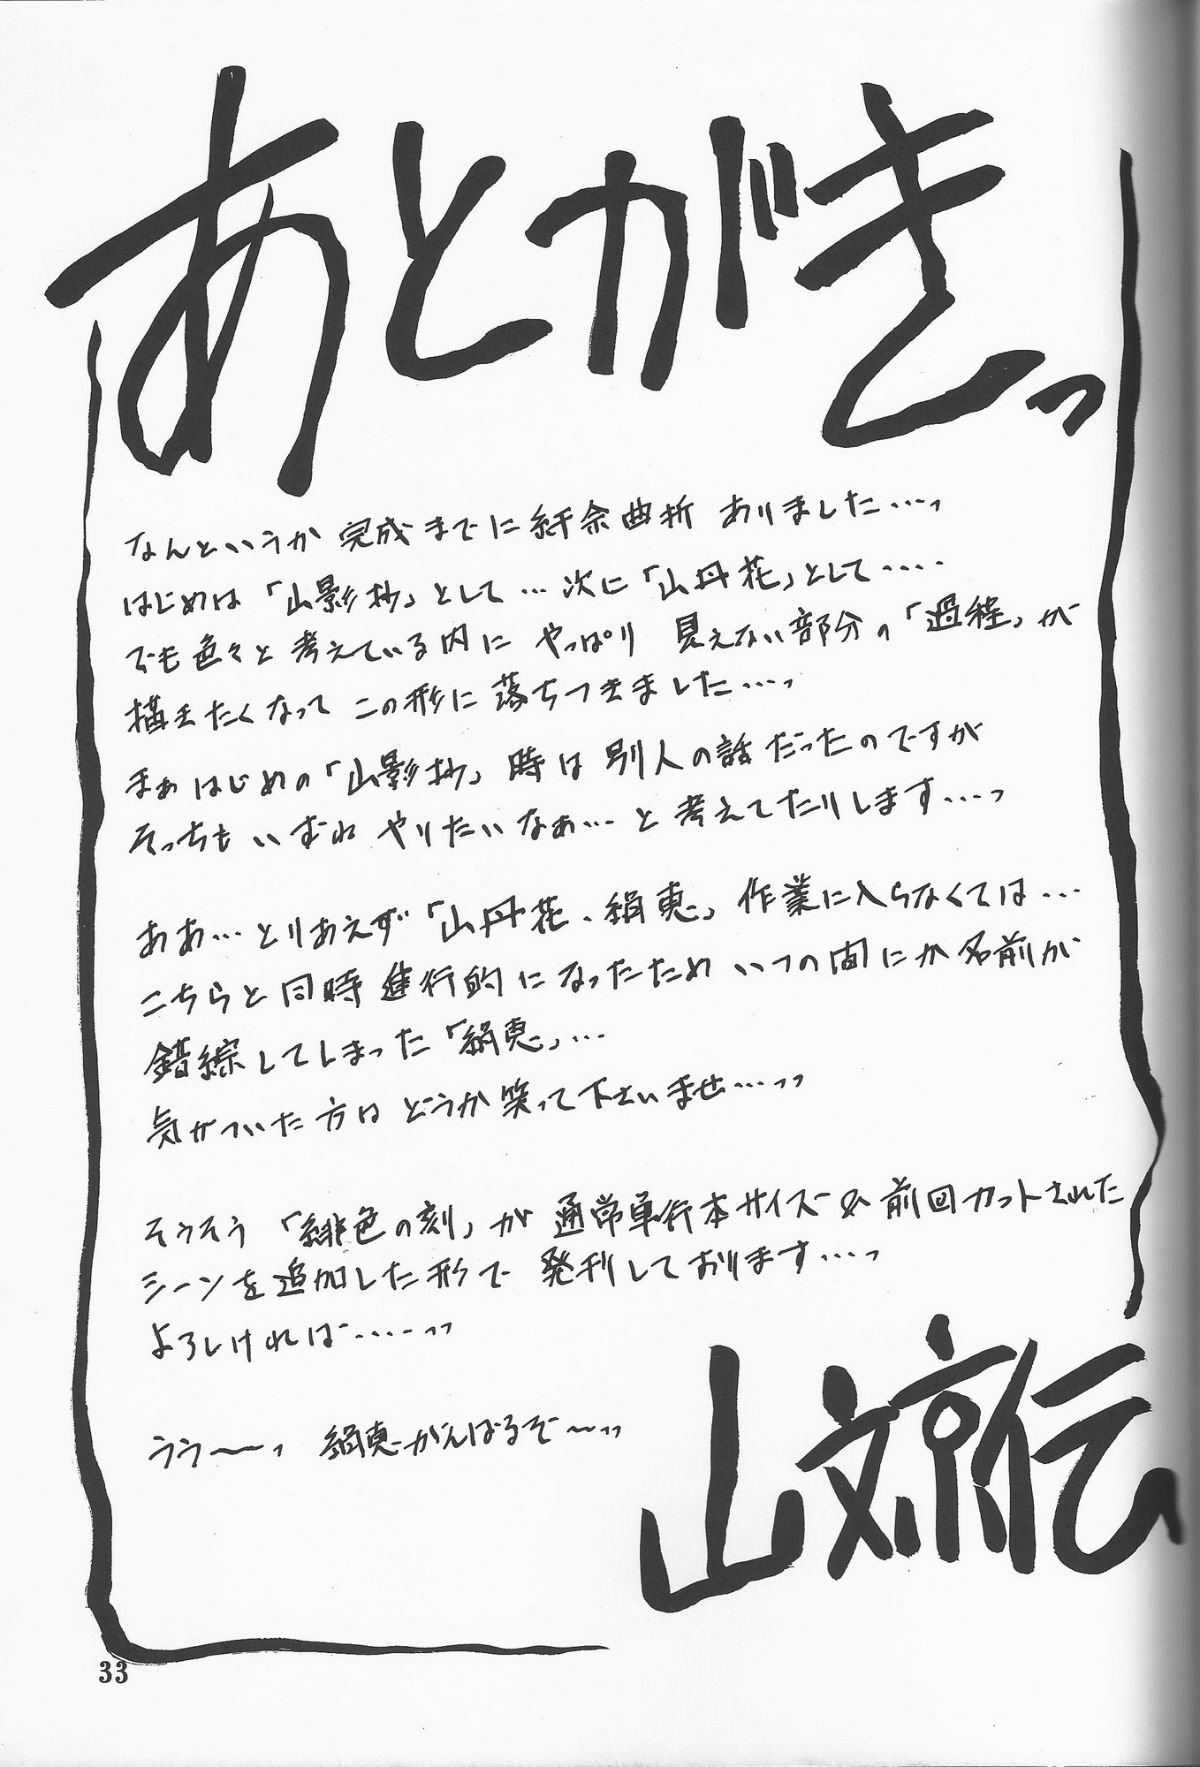 あとがきっ
なんというか 完成までに紆余曲折 ありました…っ
はじめは「山影抄」として…次に「山丹花」として‥‥
でも色々と考えている内に やっぱり 見えない部分の「過程」が
描きたくなって この形に落ちつきました…っ
まぁはじめの「山影抄」時は別人の話だったのですが
そっちもいずれ やりたいなぁ…と考えてたりします…っ
ああ…とりあえず「山丹花、絹恵」作業に入らなくては…
こちらと同時進行的になったため いつの間にか名前が
錯綜してしまった「絹恵」…
気がついた方は どうか笑って下さいませ…っっ
そうそう「緋色の刻」が 通常単行本サイズ& 前回カットされた
シーンを追加した形で 発刊しております…っ
よろしければ‥‥っっ
うう〜っ 絹恵がんばるぞ〜っっ
山文京伝
33